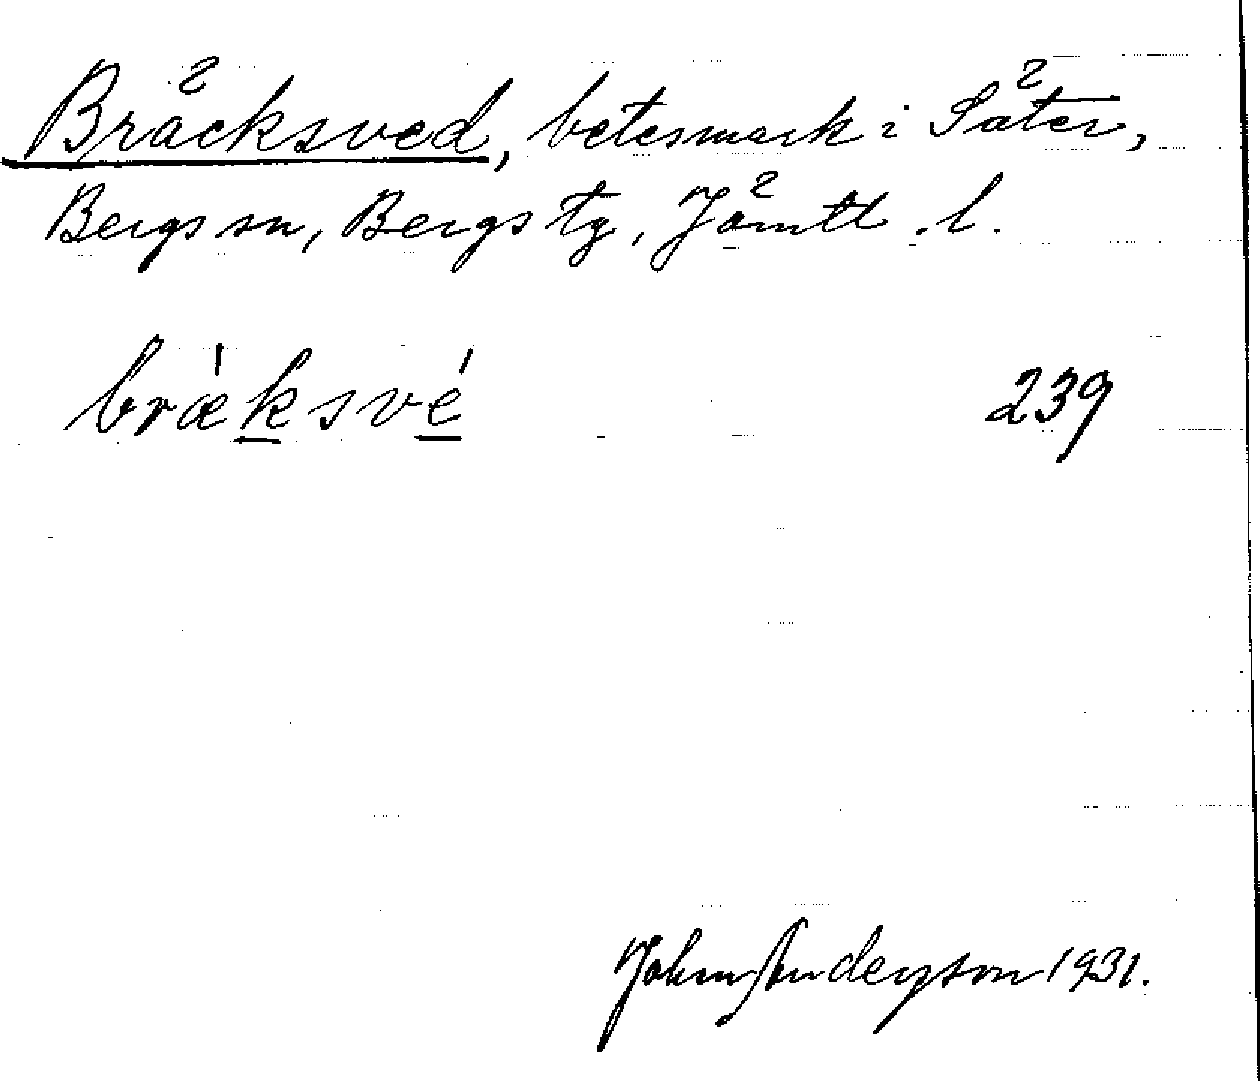 Bräcksved, betesmark i Säter,
Bergs sn, Bergs tg, Jämtl. l.
bræksvé 239
John Anderzson 1931.